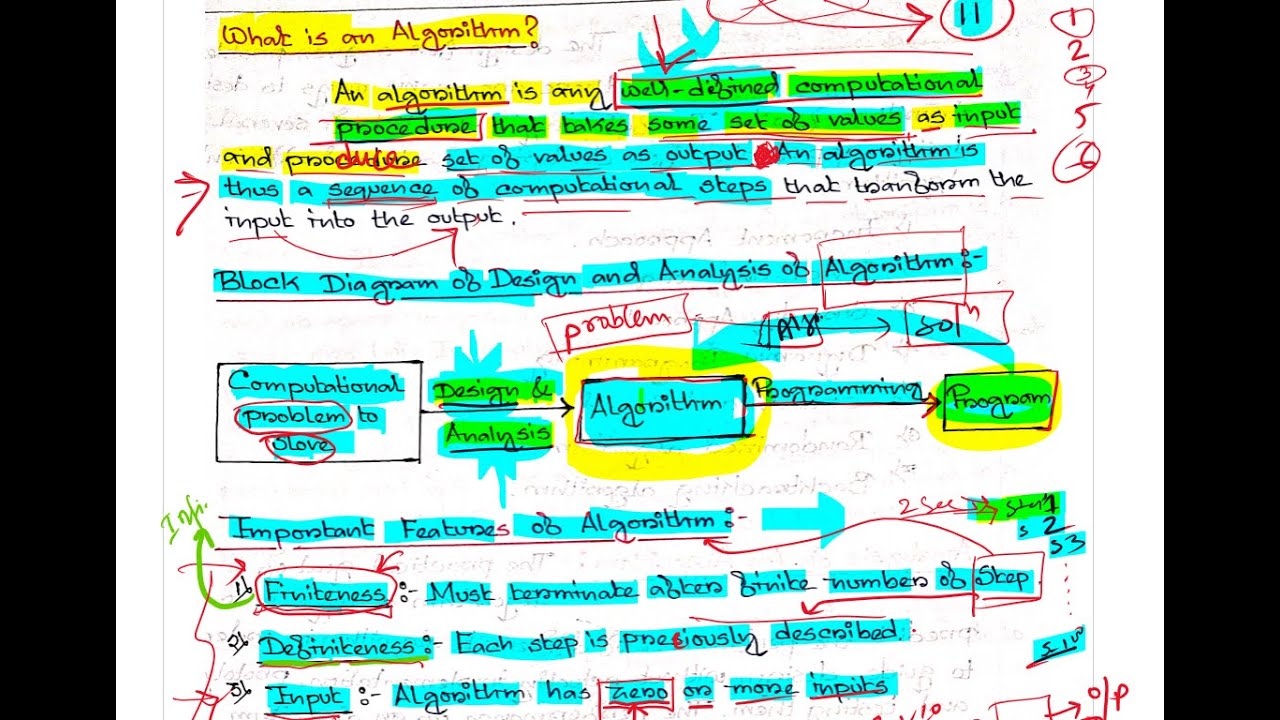 What is an Algorithm?
11
1
2
3
4
5
6
An algorithm is any well-defined computational
procedure that takes some set of values as input
and procedure set of values as output. An algorithm is
thus a sequence of computational steps that tranform the
input into the output.
Block Diagram of Design and Analysis of Algorithm:-
problem
soln
Computational
problem to
slove
Design &
Analysis
Algorithm
Programming
Program
Important Features of Algorithm:-
2 sec
s 2
s3
1) Finiteness:- Must terminate after finite number of Step.
2) Definiteness:- Each step is preciously described.
3) Input:- Algorithm has zero or more inputs
o/p